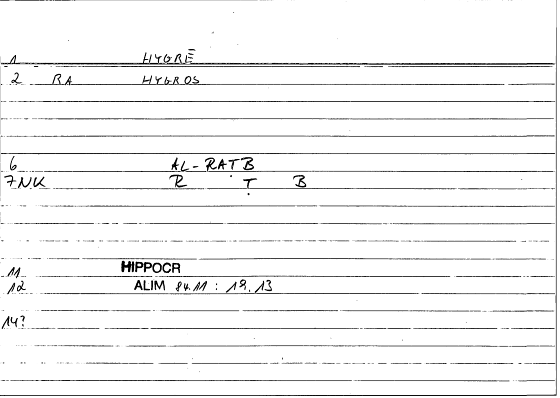 1 HYGRĒ
2 RA HYGROS
6 AL-RAṬB
7NK R Ṭ B
11 HIPPOCR
12 ALIM 84.11 : 19.13
14?